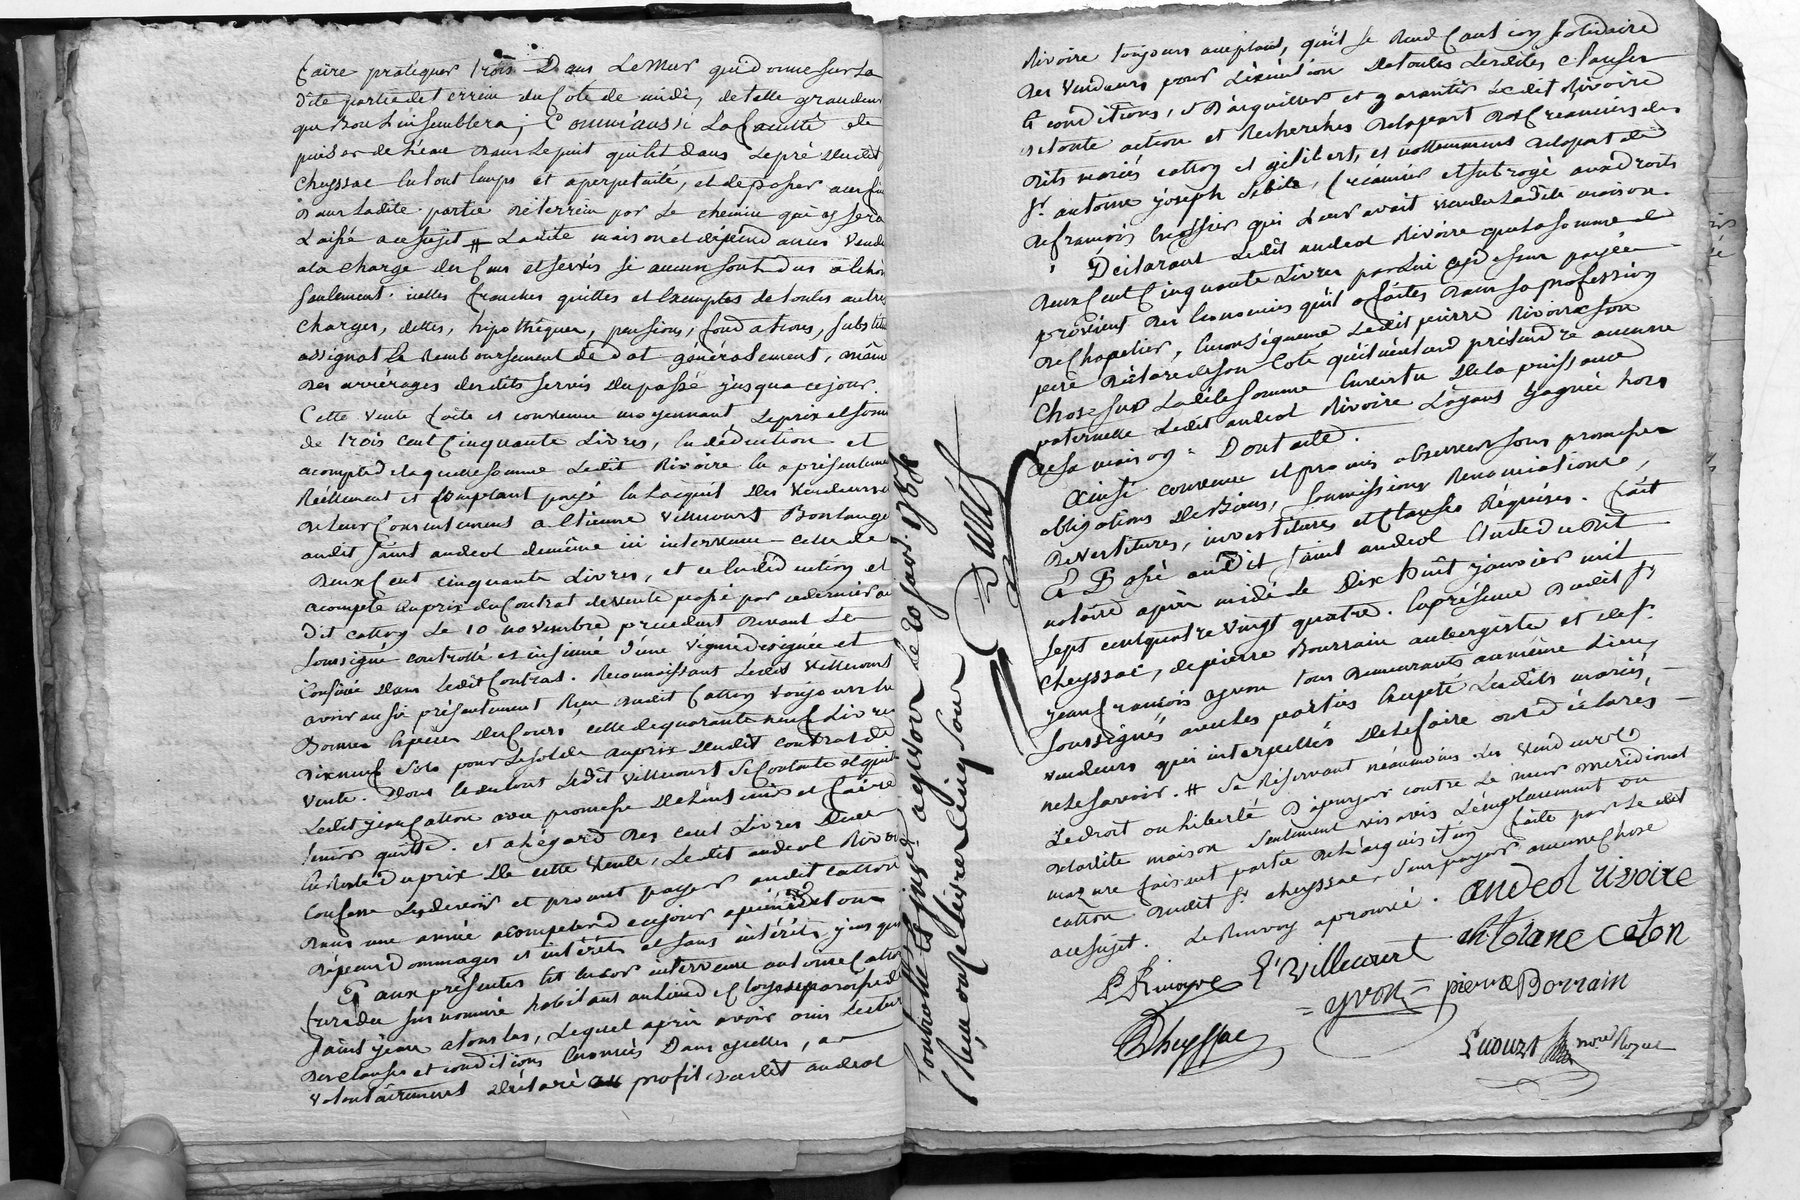 faire pratiquer trois Dans Le Mur qui donne sur La
dite partie de terrein du Côté de midi, de telle grandeur
que bon Lui semblera; Comm'aussi La faculté de
puiser de l'eau dans Le puit qui Est dans Le pré dudit
cheyssac En tout temps et a perpetuité, et de passer
dans Ladite partie de terrein par Le chemin qui y sera
Laissé a ce sujet # Ladite maison et dépend ances vendu
a la charge des Cens et servis si aucun sont dus
seulement. icelles franches quittes et Exemptes de toutes autres
charges, dettes, hipothêques, pensions, fondations,
assignat Le remboursement de dot généralement, même
des arrérages desdits servis du passé jusqu'a ce jour.
Cette vente faite et convenue moyennant Le prix et somme
de trois cent Cinquante Livres, En déduction et
acompte de laquelle somme Ledit Rivoire En a présentement
Réellement et Comptant payé En L'acquit des Vendeurs
de leur Consentement a Etienne Villecourt Boulanger
audit saint andeol demême ici intervenu celle de
deux Cent cinquante Livres, et ce En déduction et
acompte du prix du Contrat de vente passé par ce dernier au
dit catton Le 10 novembre precedent devant Le
soussigné controllé et insinué d'une vigne désignée et
Confinée dans Ledit Contrat. Reconnaissant Ledit Villecourt
avoir aussi présentement Reçu dudit Catton toujours En
Bonnes Espèces du Cours celle de quarante neuf Livres
dix neuf sols pour Le solde du prix dudit contrat de
vente. Dont Le du tout Ledit Villecourt se Contente et quitte
Ledit jean Catton avec promesse de L'en tenir et faire
tenir quitte. et a L'égard des cent Livres
En Reste du prix de cette Vente, Ledit andeol Rivoire
Confesse Les devoir et promet payer audit catton
dans une année acompter de ce jour a peine de tous
dépens Dommages et intérêts et sans intérêts jusqu'a
Et aux présentes Est Encor intervenu antoine Catton
frere du sus nommé habitant au Lieu de
saint jean a tourlas, Lequel après avoir ouis Lecture
des clauses et conditions énoncées Dans ycelles, a
volontairement déclaré au profit dudit andeol
Controllé Et insinué a givors Le 20 janv. 1784
Reçu onze livres cinq sous
Rivoire toujours acceptant, qu'il se Rend Caution solidaire
des Vendeurs pour L'exécution de toutes Lesdites clauses
Et conditions, et D'acquitter et garantir Ledit Rivoire
de toute action et Recherches de la part des Créanciers des
dits mariés catton et gilibert, et nottamment de la part de
Sr. antoine joseph, Créancier et subrogé aux droits
de françois qui Leur avait vendu Ladite maison.
Déclarant Ledit andeol Rivoire que La somme de
deux Cent Cinquante Livres par Lui cy dessus payée
provient des Economies qu'il a faites dans sa profession
de chapelier, En conséquence Ledit pierre Rivoire son
pere déclare de son Coté qu'il n'entend prétendre aucune
chose sur Ladite somme En vertu de la puissance
paternelle Ledit andeol Rivoire L'ayant gagnée hors
de sa maison. Dont acte.
Ainsi convenu et promis observer sous promesses
obligations de Biens, soumissions Renonciations,
devestitures, investitures et Clauses Réquises. fait
Et Passé audit saint andeol Etude du dit
notaire après midi Le Dix huit janvier mil
sept cent quatre vingt quatre. En présence dudit Sr
cheyssac, de pierre Bourrain aubergiste et de Sr.
jean françois yvon tous Demeurants au même Lieu
soussignés avec les parties Excepté Lesdits mariés,
vendeurs qui interpellés de Le faire ont déclarés
ne Le savoir. # Se Réservant néanmoins Les Vendeurs
Le droit ou Liberté D'apuyer contre Le mur méridional
de Ladite maison seulement vis avis L'emplacement ou
mazure faisant partie de L'acquisition faite par Le dit
catton dudit Sr. cheyssac, sans payer aucune chose
a ce sujet. Le Renvoy aprouvé. andeol rivoire
P Rivoyre E. Villecourt antoiane caton
= yvon = pierre Borrain
Cheyssac